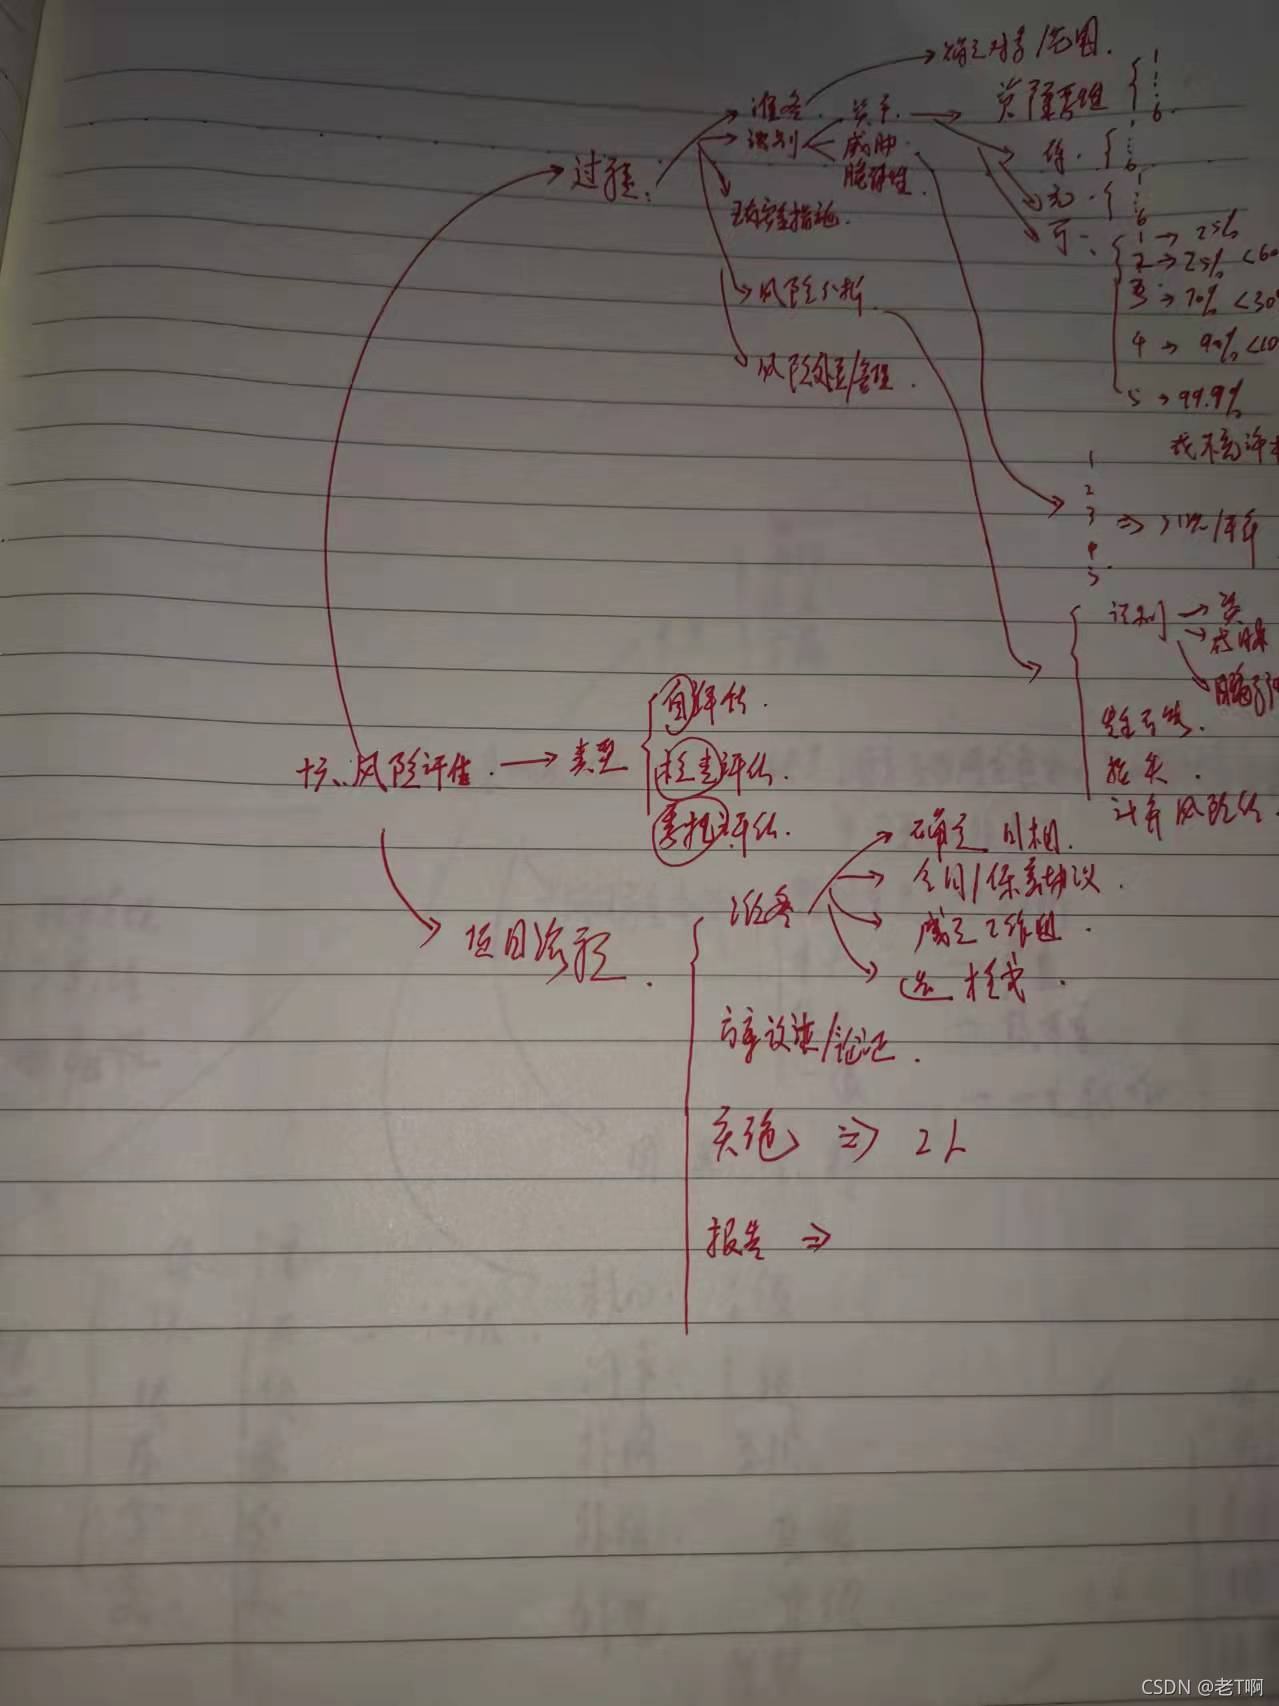 确定对象/范围.
准备. 资产. 资 重要性 { 1 6
识别 威胁 保. { 1 6
脆弱性. 完. { 1 6
过程:
已有安全措施. 可 { 1 → 25%
2 → 25% <60
3 → 70% <30
风险分析. 4 → 90% <10
风险处置/管理. 5 → 99.9%
1
2
3 ⇒
4
5
识别 → 资
→ 威胁
自评估.
损失.
十六、风险评估. → 类型 检查评估.
计算风险值.
委托评估.
确定目标.
合同/保密协议.
准备
项目流程. 成立工作组.
选 模式.
方案设计/论证.
实施 ⇒ 2L
报告 ⇒
CSDN @老T啊